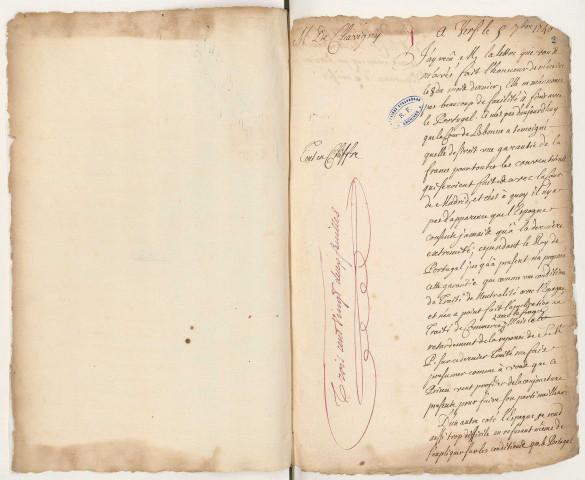 M. De Chavigny
A Vers.lles 5 7bre 1740
2
J'ay reçu M. la lettre que vous
m'avés fait l'honneur de m'écrire
le du mois dernier, Elle m'annonce
pas beaucoup de facilité à finir avec
le Portugal. Ce n'est pas d'aujourd'huy
que la Cour de Lisbonne a temoigné
qu'elle desiroit une garantie de la
france pour toutes les conventions
qui seroient faites avec la Cour
de Madrid, et c'est à quoy il n'y a
pas d'apparence que l'Espagne
consente jamais qu'à la derniere
extremité; cependant le Roy de
Portugal jusqu'à present n'a proposé
cette garantie que comme une condition
du Traité de Neutralité avec l'Espagne
et n'en a point fait l'application au
Traité de Commerce. Mais le
retardement de la reponse de S. M.
P. sur ce dernier Traité me fait
presumer comme à vous que ce
Prince veut profiter de la conjoncture
presente pour faire son parti meilleur.
D'un autre coté l'Espagne se rend
aussi trop difficile en refusant même de
s'expliquer sur les conditions que le Portugal
Tout en Chiffre
Trois cent vingt deux feuilles
R. F.